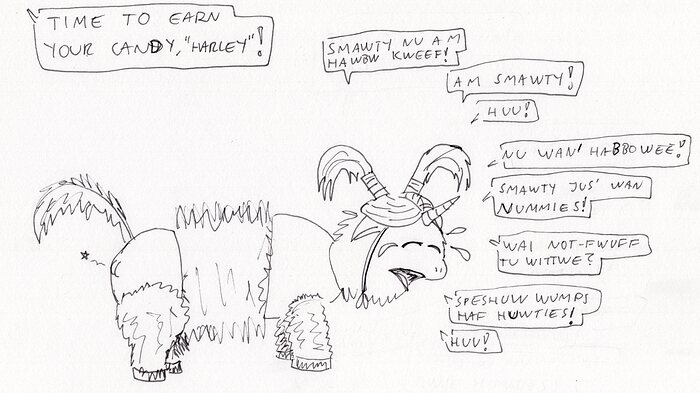 TIME TO EARN
YOUR CANDY, "HARLEY"!
SMAWTY NU AM
HAWBW KWEEF!
AM SMAWTY!
HUU!
NU WAN' HABBOWEE!
SMAWTY JUS' WAN
NUMMIES!
WAI NOT-FWUFF
TU WITTWE?
SPESHUW WUMPS
HAF HUWTIES!
HUU!